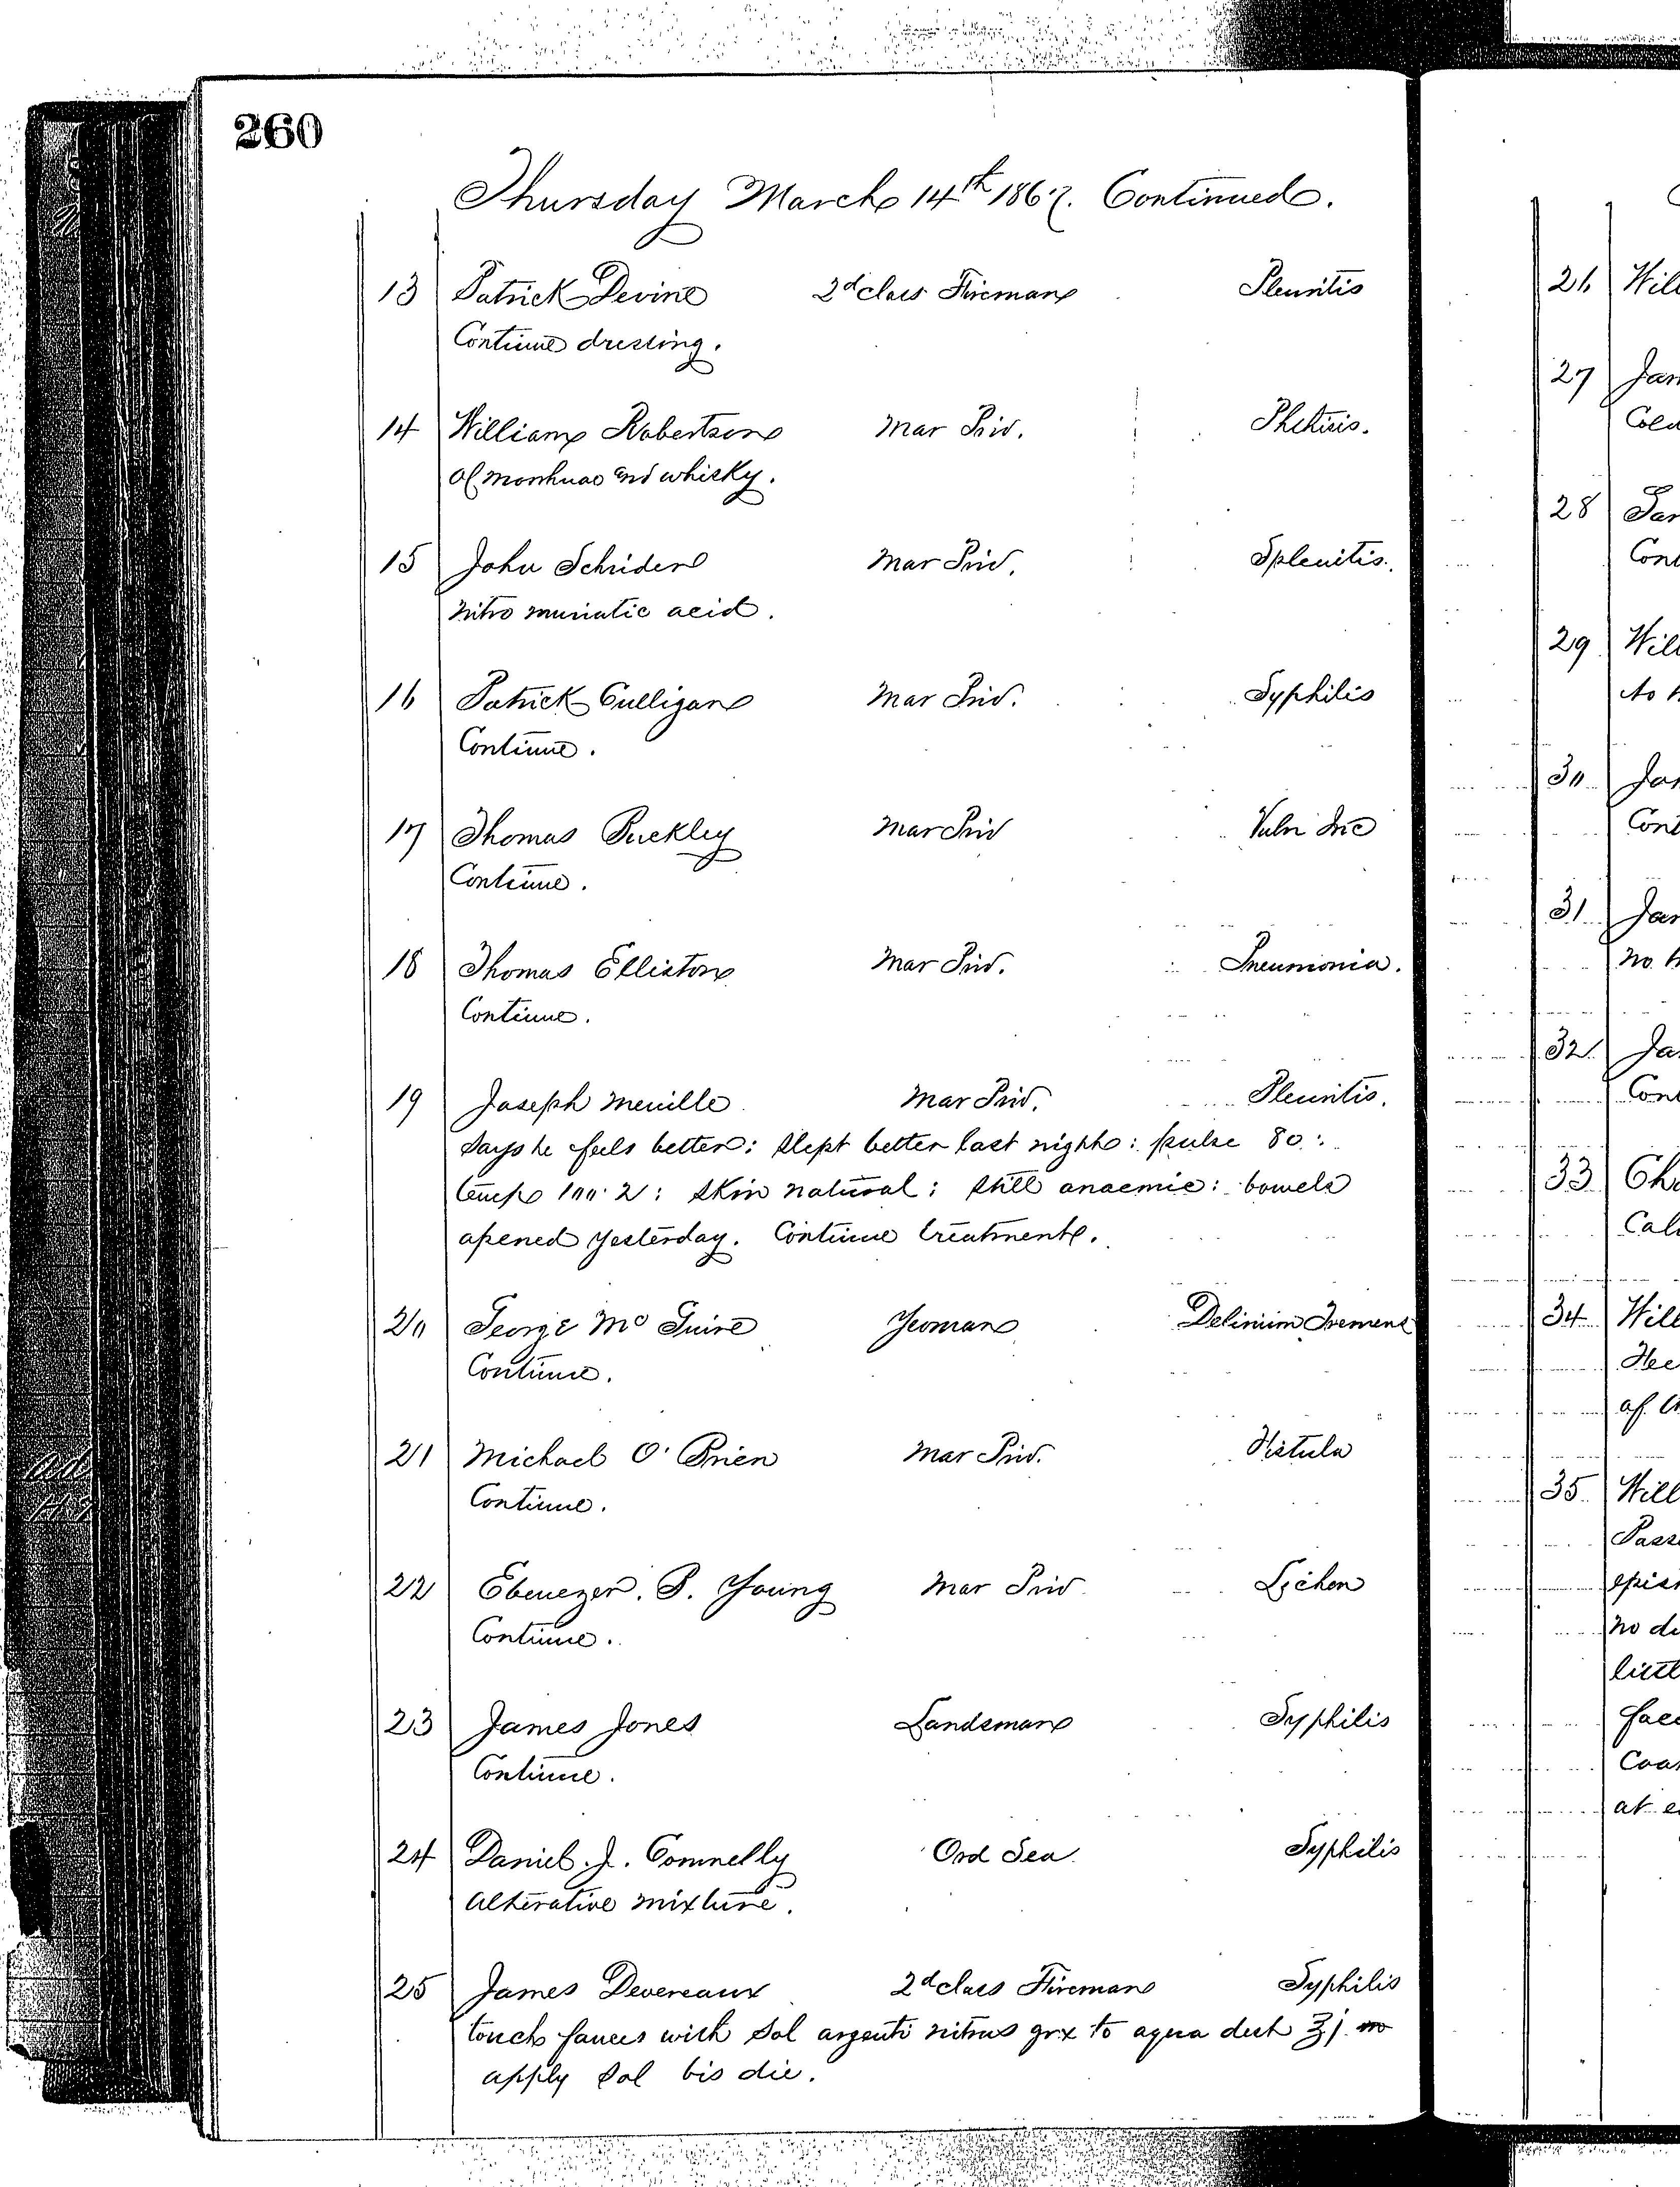 260
Thursday March 14th 1867. Continued.
13 Patrick Devine 2d class Fireman Pleuritis
Continue dressing.
14 William Robertson Mar Priv. Phthisis.
Ol morrhuae and whisky.
15 John Schrider Mar Priv. Splenitis.
Nitro muriatic acid.
16 Patrick Culligan Mar Priv. Syphilis
Continue.
17 Thomas Buckley Mar Priv Vuln Inc
Continue.
18 Thomas Elliston Mar Priv. Pneumonia.
Continue.
19 Joseph Meville Mar Priv. Pleuritis.
Says he feels better: slept better last night: pulse 80:
temp 100.2: skin natural: still anaemic: bowels
opened yesterday. Continue treatment.
20 George Mc Guire Yeoman Delirium Tremens
Continue.
21 Michael O'Brien Mar Priv. Fistula
Continue.
22 Ebenezer. P. Young Mar Priv Lichen
Continue.
23 James Jones Landsman Syphilis
Continue.
24 Daniel. J. Connelly Ord Sea. Syphilis
Alterative mixture.
25 James Devereaux 2d class Fireman Syphilis
touch fauces with sol argenti nitras grx to aqua dest ℥j
apply sol bis die.
26 Will
27 Jam
28
Cont
29 Will
to
30 Jam
Cont
31 Jam
no
32 Ja
Cont
33 Cha
34 Will
of
35 Will
no
at